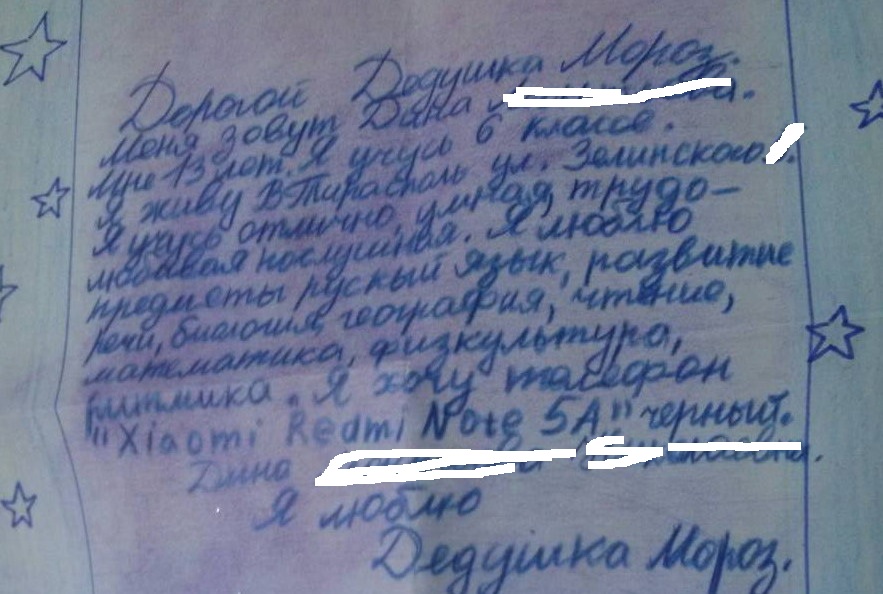 Дорогой Дедушка Мороз.
Меня зовут Дина
Мне 13 лет. Я учусь 6 классе.
Я живу в Тирасполь ул. Зелинского
Я учусь отлично, умная, трудо-
любивая послушная. Я люблю
предметы руский язык, развитие
речи, биология, география, чтение,
математика, физкультура,
ритмика. Я хочу телефон
"Xiaomi Redmi Note 5A" черный.
Дина
Я люблю
Дедушка Мороз.